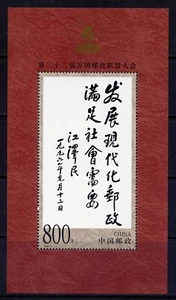 第二十二届万国邮政联盟大会
发展現代化郵政
滿足社會需要
江澤民
一九九年月十二日
800分
CHINA
中国邮政